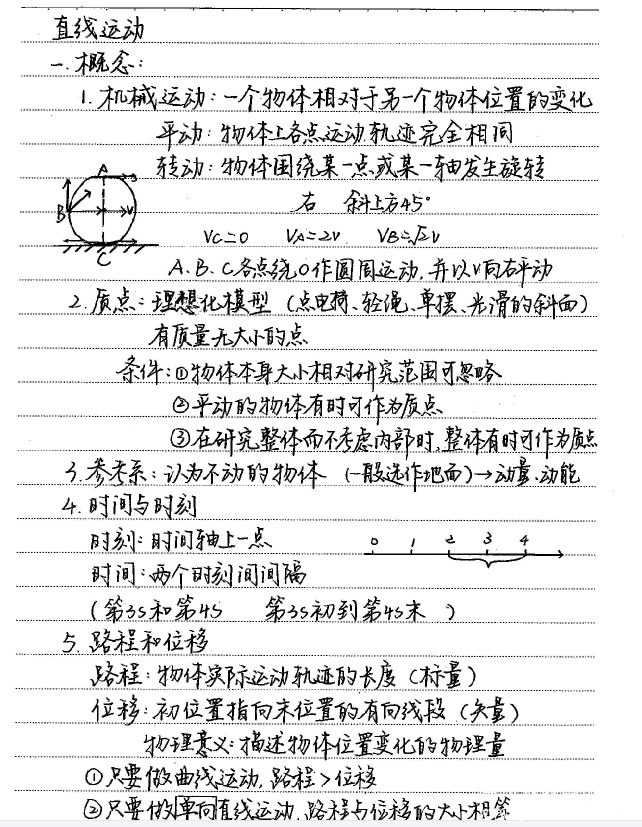 直线运动
一.概念:
1. 机械运动:一个物体相对于另一个物体位置的变化
平动:物体上各点运动轨迹完全相同
转动:物体围绕某一点或某一轴发生旋转
A
B
v
C
右 斜上方45°
VC=0 VA=2V VB=√2V
A.B.C各点绕O作圆周运动,并以V向右平动
2. 质点:理想化模型(点电荷、轻绳、单摆、光滑的斜面)
有质量无大小的点
条件:①物体本身大小相对研究范围可忽略
②平动的物体有时可作为质点
③在研究整体而不考虑内部时,整体有时可作为质点
3. 参考系:认为不动的物体(一般选作地面)→动量、动能
4. 时间与时刻
时刻:时间轴上一点
0 1 2 3 4
时间:两个时刻间间隔
(第3s和第4s 第3s初到第4s末)
5. 路程和位移
路程:物体实际运动轨迹的长度(标量)
位移:初位置指向末位置的有向线段(矢量)
物理意义:描述物体位置变化的物理量
①只要做曲线运动,路程>位移
②只要做单向直线运动,路程与位移的大小相等